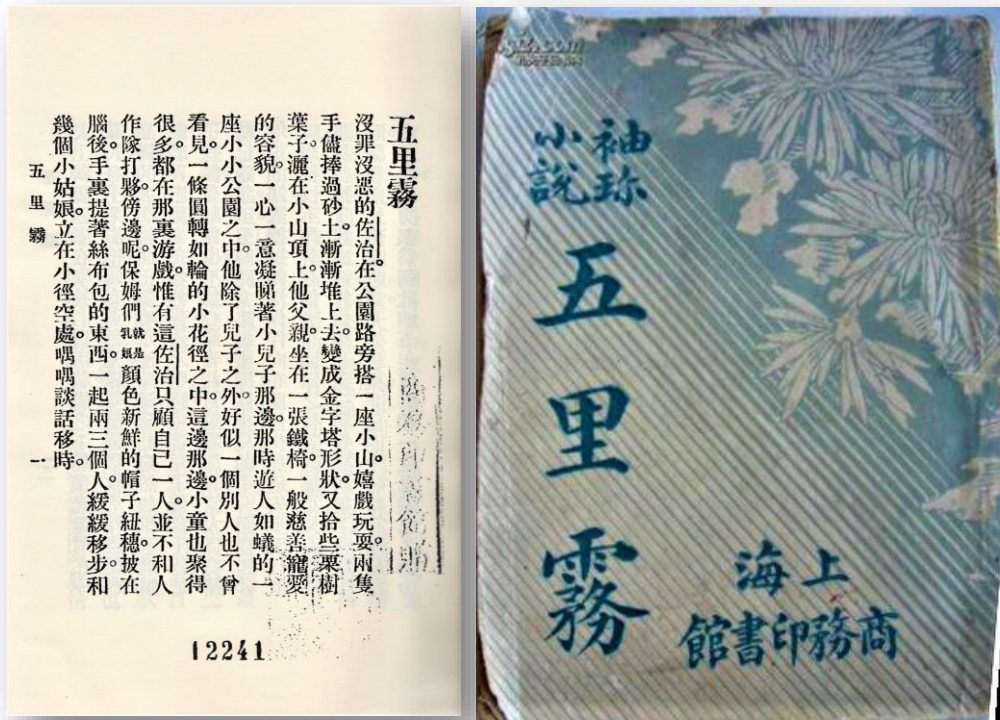 五里霧
沒罪沒惡的佐治。在公園路旁搭一座小山。嬉戲玩耍。兩隻
手儘捧過砂土。漸漸堆上去。變成金字塔形狀。又拾些栗樹
葉子。灑在小山頂上。他父親坐在一張鐵椅。一般慈善寵愛
的容貌。一心一意凝睇著小兒子那邊。那時遊人如蟻的一
座小小公園之中。他除了兒子之外。好似一個別人也不曾
看見。一條圓轉如輪的小花徑之中。這邊那邊。小童也聚得
很多。都在那裏游戲。惟有這佐治只顧自己一人。並不和人
作隊打夥。傍邊呢。保姆們就是乳娘顏色新鮮的帽子紐穗。披在
腦後。手裏提著絲布包的東西。一起兩三個人。緩緩移步。和
幾個小姑娘。立在小徑空處。喁喁談話移時。
五里霧
一
12241
袖珍
小說
五里霧
上海
商務印書館